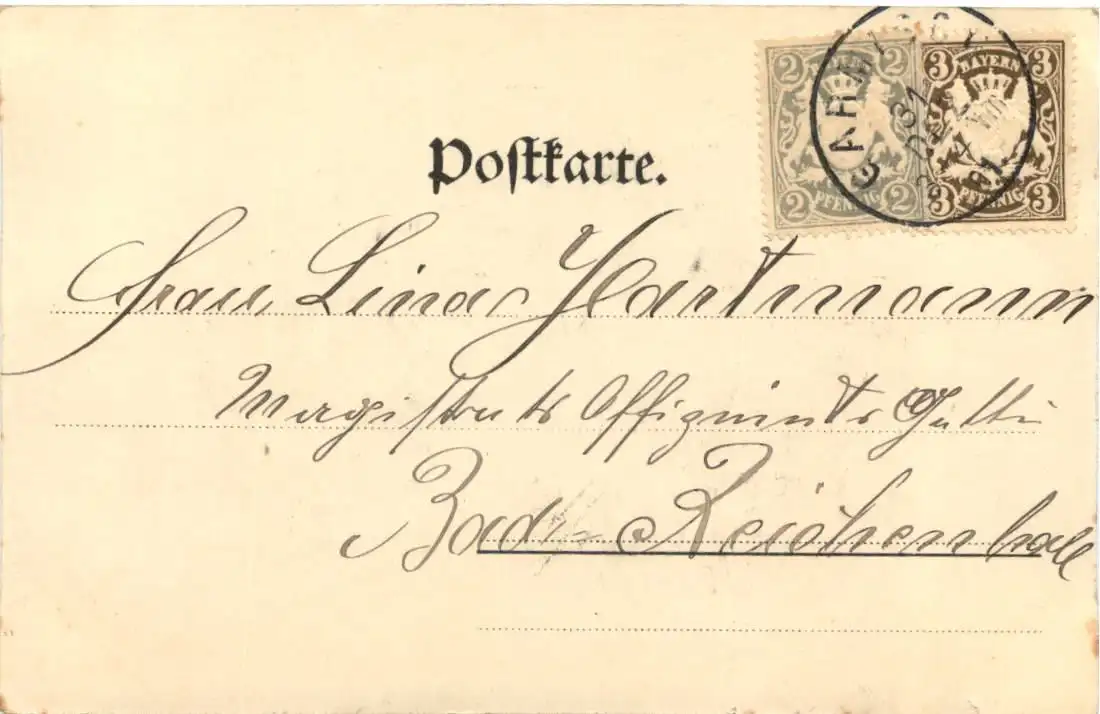 2 2 3 BAYERN 3
2 PFENNIG 2 3 PFENNIG 3
GARMISCH
31 DEZ
Postkarte.
Frau Lina Hartmann
Magistrats Offiziants Gattin
Bad-Reichenhall